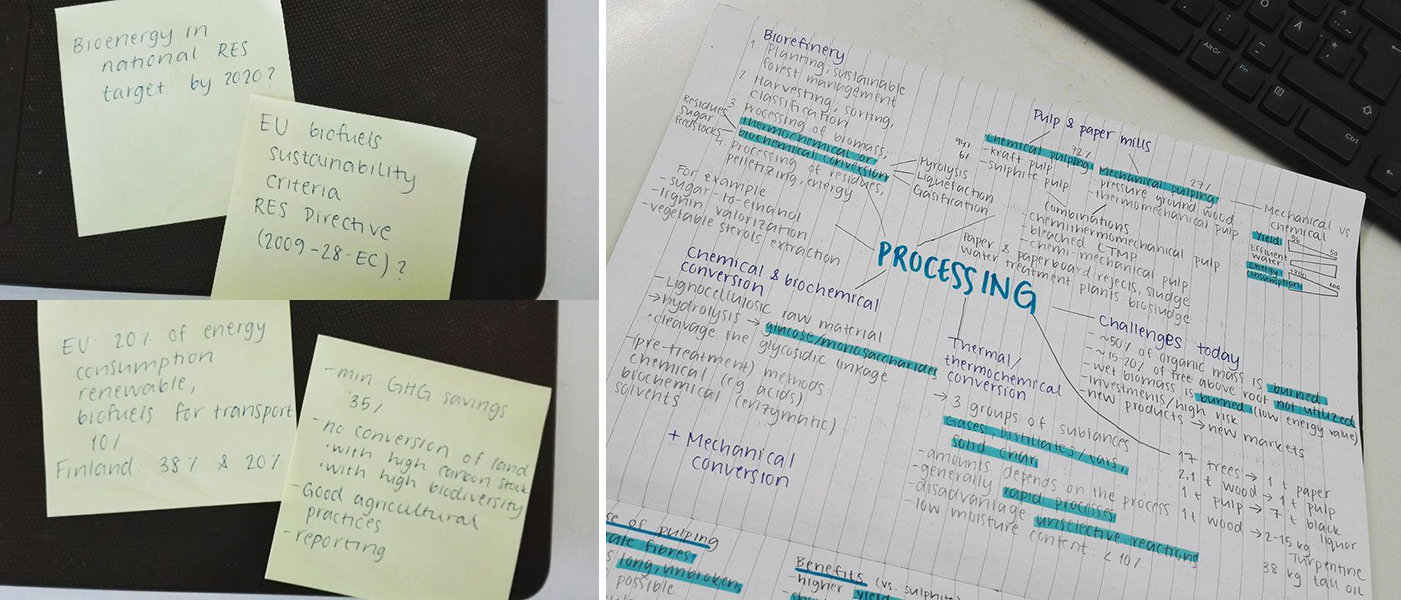 Bioenergy in
national RES
target by 2020?
EU biofuels
sustainability
criteria
RES Directive
(2009-28-EC)?
EU: 20% of energy
consumption
renewable,
biofuels for transport
10%
Finland: 38% & 20%
-min GHG savings
35%
-no conversion of land
•with high carbon stock
•with high biodiversity
-Good agricultural
practices
-reporting
Biorefinery
1 Planting, sustainable
forest management
2 Harvesting, sorting,
classification
3. Processing of biomass,
thermochemical or
biochemical conversion
4. processing of residues,
pelletizing, energy
Residues
sugar
feedstocks
Pyrolysis
Liquefaction
Gasification
For example
-sugar-to-ethanol
-lignin valorization
-vegetable sterols extraction
Pulp & paper mills
72%
Chemical pulping
-kraft pulp
-sulphite pulp
27%
Mechanical pulping
-pressure ground wood
-thermomechanical pulp
Combinations
-chemithermomechanical pulp
-bleached CTMP
-chemi-mechanical pulp
Paper & paperboard: rejects, sludge
water treatment plants biosludge
Mechanical vs
chemical
Yield
Effluent
water
Energy
consumption
PROCESSING
Chemical & biochemical
conversion
-Lignocellulosic raw material
→hydrolysis → glucose/monosaccharides
•cleavage the glycosidic linkage
-(pre-treatment) methods:
chemical (e.g. acids)
biochemical (enzymatic)
solvents
+ Mechanical
conversion
Thermal/
thermochemical
conversion
→ 3 groups of substances
Gases, Distillates/tars,
solid char
-amounts depends on the process
-generally rapid processes
-disadvantage unselective reactions
-low moisture content: < 10%
Challenges today
- ~50% of organic mass is burned
- ~15-20% of tree above root not utilized
-wet biomass is burned (low energy value)
-investments/high risk
-new products → new markets
17 trees → 1 t paper
2,1 t wood → 1 t pulp
1 t pulp → 7 t black
liquor
1t wood → 2-15 kg
Turpentine
38 kg tall oil
se of pulping
fibres
long, unbroken,
possible
Benefits (vs. sulphite)
-higher yield